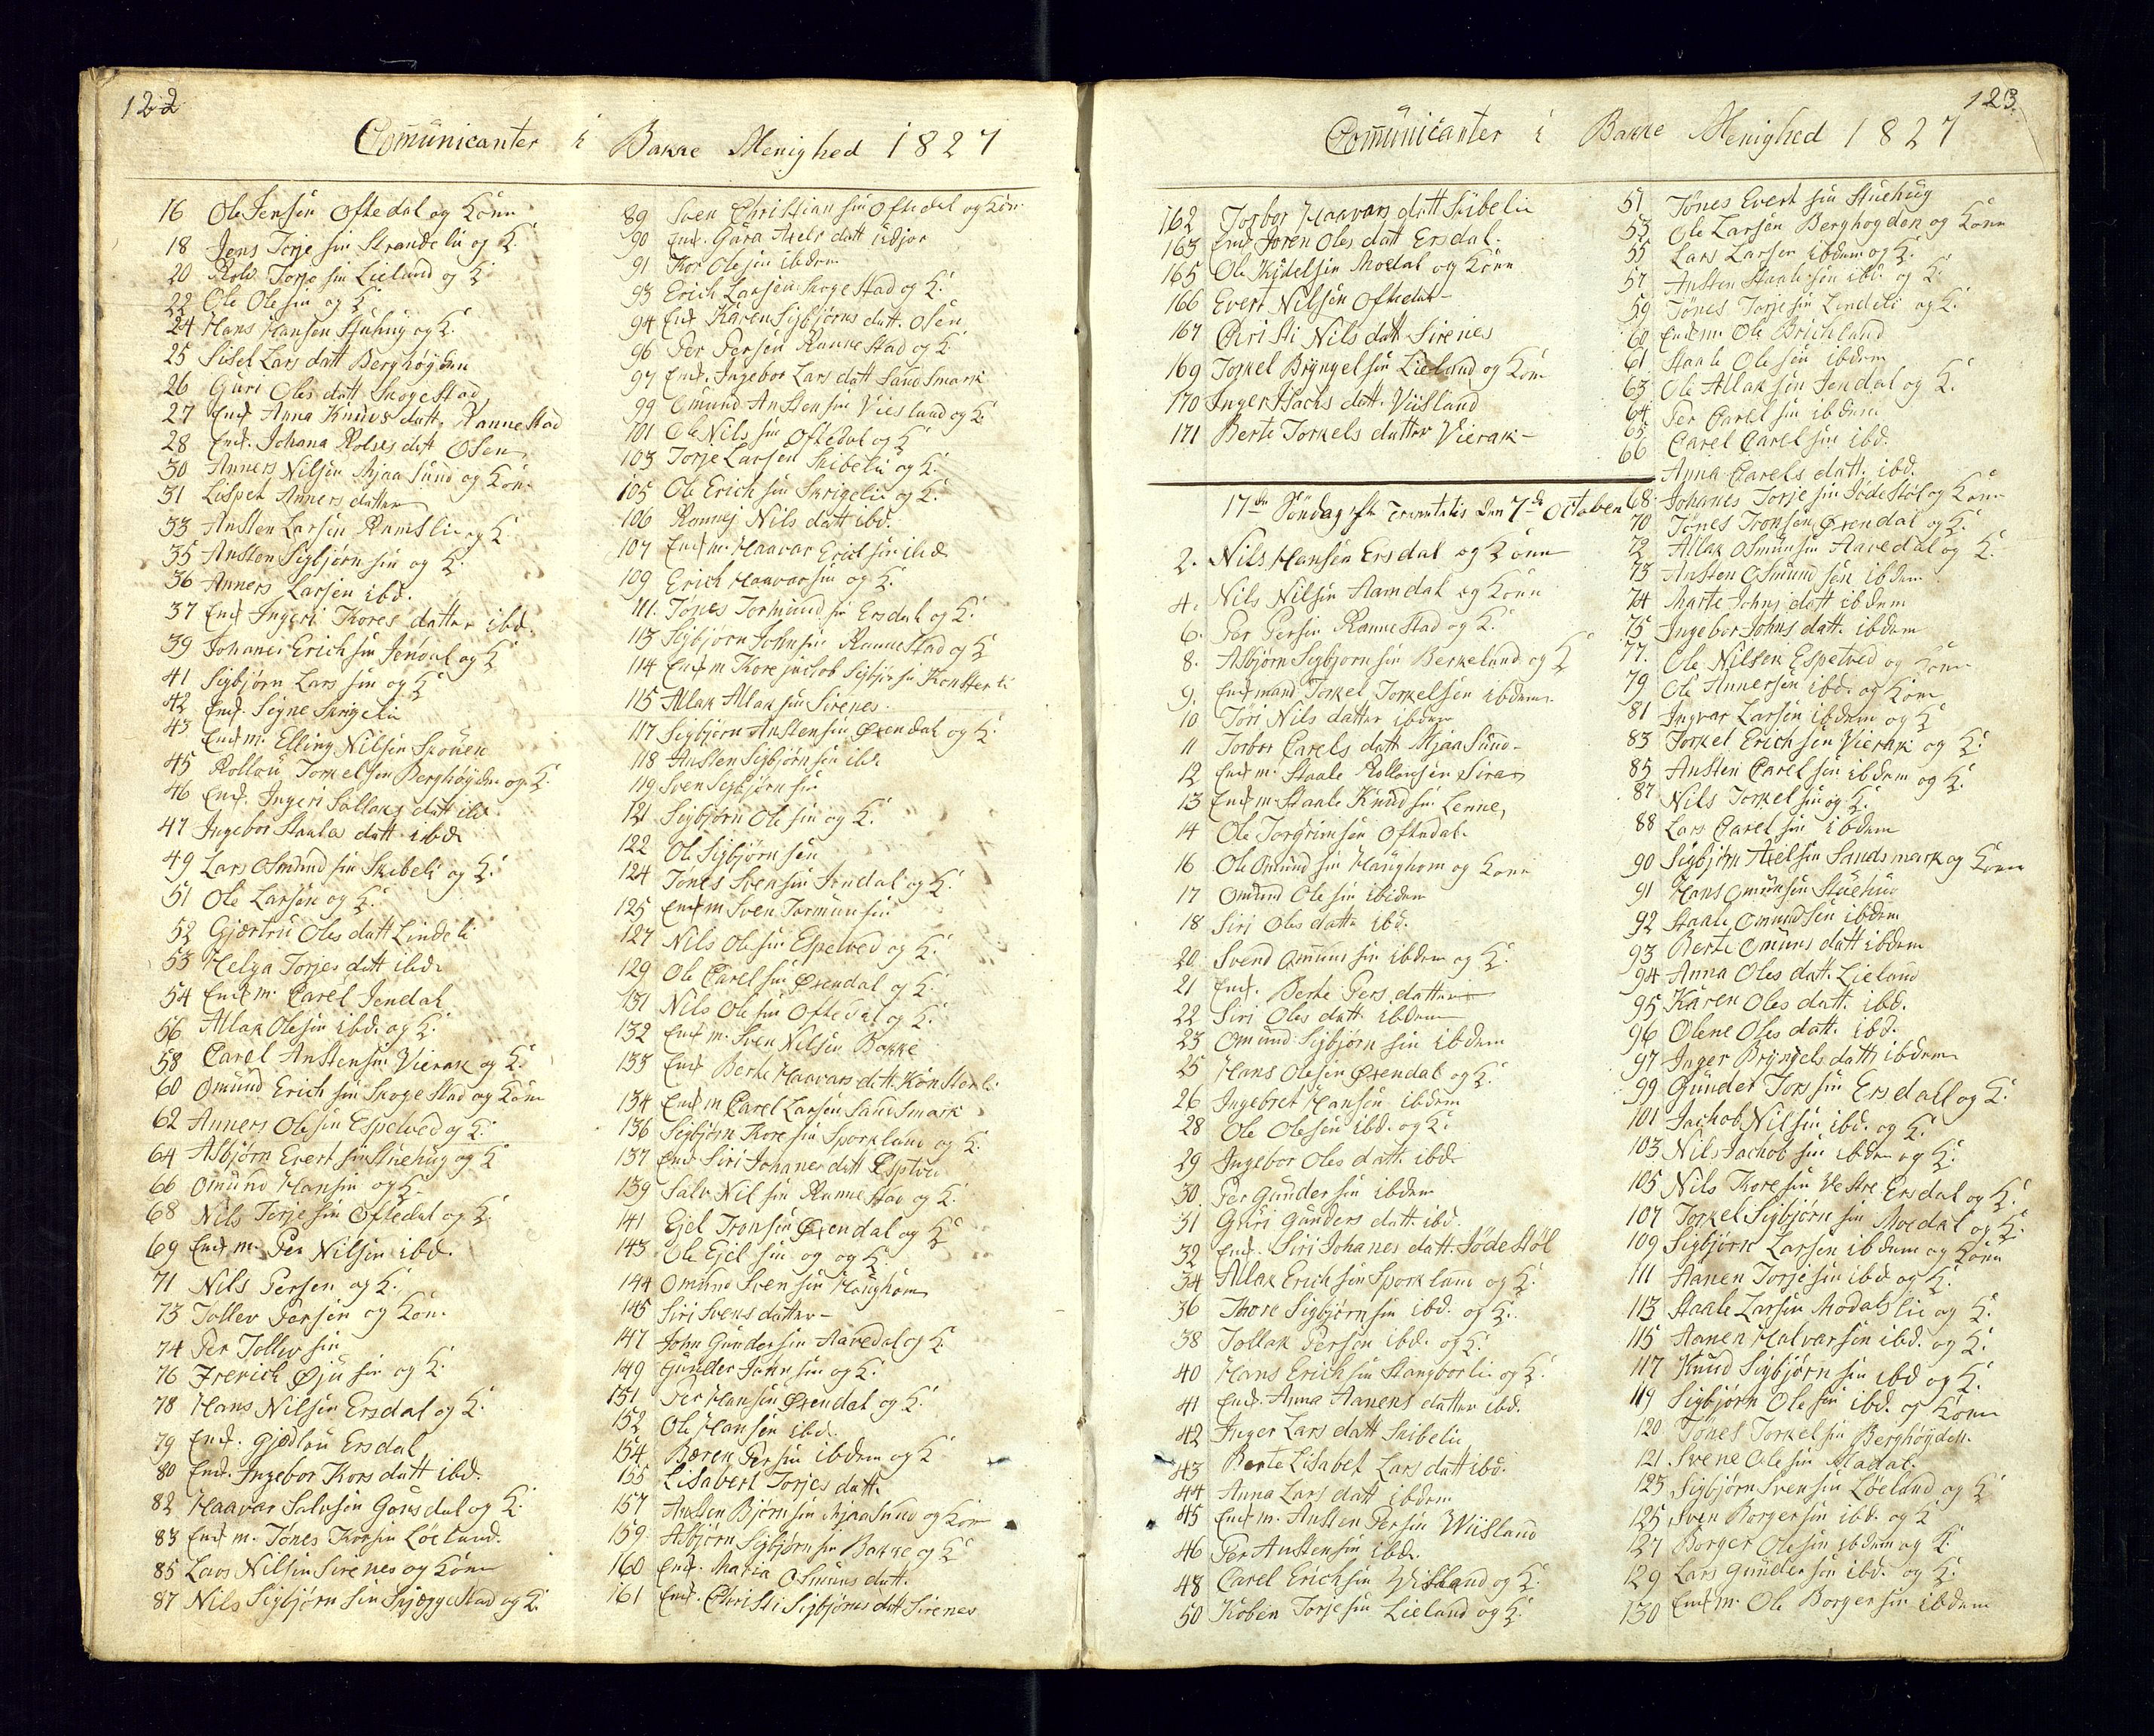 122
Comünicanter i Bakke Menighed 1827
16 Ole Jensen Oftedal og Kone
18 Jens Torje sin Strandeli og K.
20 Rolv Torje sin Lieland og K
22 Ole Ole sin og K
24 Hans Hansen Stuhug og K.
25 Sisel Lars datt Berghøÿden
26 Guri Oles datt Skogestad
27 Enk Anna Knuds datt, Rannestad
28 Enk. Johana Rolvs datt Osen
30 Anners Nilsen Mjaasund og Kone
31 Lispet Anners datter
33 Ansten Larsen Ramslie og K
35 Ansten Sigbjørn sin og K.
36 Anners Larsen ibd.
37 Enk Ingeri Kores datter ibd.
39 Johanes Erich sin Jendal og K
41 Sigbjørn Lars sin og K
42 Enk. Signe Skrigelie
43 Enk m. Elling Nilsen Skouen
45 Rollou Torkelsen Berghøÿden og K.
46 Enk. Ingeri Sallaks datt ibd
47 Ingebor Staales datt ibd
49 Lars Osmund sin Skibeli og K.
51 Ole Larsen og K.
52 Gjertru Oles datt Lindeli
53 Helga Torjes datt ibd.
54 Enk m. Carel Jendal
56 Atlak Olesin ibd. og K.
58 Carel Anstensin Vierak og K.
60 Omund Erich sin Skogestad og Kone
62 Anners Ole sin Espetved og K.
64 Asbjørn Evert sin Stuehug og K
66 Omund Hansin og K
68 Nils Torje sin Oftedal og K.
69 Enk m. Per Nilsin ibd.
71 Nils Persen og K.
73 Tollev Persen og Kone
74 Per Tollev sin
76 Frerich Øju sin og K.
78 Hans Nilsin Ersdal og K.
79 Enk. Gjødlou Ersdal
80 Enk. Ingebor Kors datt ibd.
82 Haavar Salvsen Gousdal og K.
83 Enk m. Tønes Korsin Løeland.
85 Lars Nilsin Sirenes og Kone
87 Nils Sigbjørn sin Skjeggestad og K.
89 Sven Christian sin Oftedal og Kone
90 Enk. Gura Axels datt Udjor
91 Kor Ole sin ibdem
93 Erich Larsen Skogestad og K.
94 Enk Karen Sigbjørns datt. Osen
96 Per Persen Rannestad og K
97 Enk. Ingebor Lars datt Sandsmark
99 Omund Ansten sin Viesland og K.
101 Ole Nils sin Oftedal og K
103 Torje Larsen Skibeli og K.
105 Ole Erich sin Skrigelie og K.
106 Ronnej Nils datt ibd.
107 Enk m. Haavar Erich sin ibd
109 Erich Haavar sin og K.
111. Tønes Tormund sin Ersdal og K.
113 Sigbjørn John sin Rannestad og K
114 Enk m Kore Jachob Sigbjør sin Konsterli
115 Atlak Atlak sin Sirenes.
117 Sigbjørn Ansten sin Øxendal og K.
118 Ansten Sigbjørn sin ibd.
119 Sven Sigbjørn sin
121 Sigbjørn Ole sin og K.
122 Ole Sigbjørn sen
124 Tønes Sven sin Jendal og K.
125 Enk m Sven Tormun sin
127 Nils Ole sin Espetved og K.
129 Ole Carel sin Øxendal og K.
131 Nils Ole sin Oftedal og K.
132 Enk m. Sven Nilsin Bakke
133 Enk Berte Haavars datt. Konsterli
134 Enk m Carel Larsen Sandsmark
136 Sigbjørn Kore sin Sporkland og K.
137 Enk Siri Johanes datt Espetved
139 Salv. Nil sin Rannestad og K.
141 Ejel Tronsin Øxendal og K
143 Ole Ejel sin og og K.
144 Omund Sven sin Haughom
145 Siri Svens datter
147 John Gunder sin Aavedal og K.
149 Gunder John sin og K.
151 Per Hansen Øxendal og K.
152 Ole Hansen ibd.
154 Bæren Per sin ibdem og K
155 Lisabert Torjes datt.
157 Ansten Bjørn sin Mjaasund og Kone
159. Asbjørn Sigbjørn sin Bakke og K
160 Enk. Maria Osmuns datt.
161 Enk. Christi Sigbjørns datt Sirenes
123
Comünicanter i Bakke Menighed 1827
162 Torbor Haavars datt Skibelie
163 Enk Joren Oles datt Ersdal.
165 Ole Kidelsin Moedal og Kone
166 Evert Nilsen Oftedal
167 Christi Nils datt Sirenes
169 Torkel Brÿngel sin Lieland og Kone
170 Inger Isachs datt. Viisland
171 Berte Torkels datter Vierak
17de Søndag eftr Trinitatis den 7de October
2. Nils Hansen Ersdal og Kone
4. Nils Nilsin Aamdal og Kone
6. Per Persin Rannestad og K.
8. Asbjørn Sigbjørn sin Berkeland og K
9. Enkmand Torkel Torkelsen ibdem
10 Jøri Nils datter ibdem
11 Torbor Carels datt Mjaasund
12 Enk m. Staale Rollousen Sirnes
13 Enk m Staale Knud sin Lenne,
14 Ole Torgrimsen Oftedal.
16 Ole Omund sin Haughom og Kone
17 Omund Ole sin ibidem
18 Siri Oles datte ibd.
20 Svend Omuns sin ibdem og K.
21 Enk. Berte Pers datter
22 Siri Oles datt ibdem
23 Omund Sigbjørn sin ibdem
25 Hans Olesin Øxendal og K.
26 Ingebret Hansen ibdem
28 Ole Olesin ibd. og K.
29 Ingebor Oles datt. ibd.
30. Per Gunder sin ibdem
31 Guri Gunders datt. ibd.
32 Enk. Siri Johanes datt. Jødestøl
34 Atlak Erich sin Sporkland og K.
36 Thore Sigbjørn sin ibd. og K.
38 Tollak Persen ibd. og K.
40 Hans Erich sin Stangborlie og K.
41 Enk. Anna Aanens datter ibd.
42 Inger Lars datt Skibelie
43 Berte Lisabet Lars datt ibd.
44 Anna Lars datt ibdem
45 Enk m. Ansten Per sin Wiisland
46 Per Anstensin ibd.
48 Carel Erich sin Viisland og K.
50 Koben Torje sin Lieland og K.
51 Tønes Evert sin Stuehug
53 Ole Larsen Berghogden og Kone
55 Lars Larsen ibdem og K.
57 Ansten Staale sin ibd. og K.
59 Tønes Torje sin Lindeli og K.
60 Enk m. Ole Brichland
61 Staale Ole sin ibdem
63 Ole Atlak sin Jendal og K.
64 Per Carel sin ibdem
65 Carel Carel sin ibd.
66 Anna Carels datt. ibd.
68. Johanes Torje sin Jødestøl og Kone
70 Tønes Tronsen Øxendal og K.
72 Atlak Osmun sin Aavedal og K.
73 Ansten Osmund sen ibdem
74 Marte Johns datt ibdem
75 Ingebor Johns datt. ibdem
77. Ole Nilsen Espetved og Kone
79 Ole Annersen ibd. og Kone
81 Ingvar Larsen ibdem og K
83 Torkel Erich sen Vierak og K.
85 Ansten Carel sin ibdem og K.
87 Nils Torkel sin og K.
88 Lars Carel sin ibdem
90 Sigbjørn Axelsin Sandsmark og Kone
91 Hans Omunsin Stuehug
92 Staale Omundsen ibdem
93 Berte Omuns datt ibdem
94 Anna Oles datt. Lieland
95 Karen Oles datt. ibd.
96 Olene Oles datt. ibd.
97 Inger Brÿngels datt ibdem
99 Gunder Tors sin Ersdall og K.
101 Jachob Nilsin ibd. og K.
103 Nils Jachob sin ibdem og K.
105 Nils Kore sin Vestre Ersdal og K.
107 Torkel Sigbjørn sin Moedal og K.
109 Sigbjørn Larsen ibdem og Kone
111 Aanen Torje sin ibd og K.
113 Staale Larsin Modalslie og K.
115 Aanen Halvar sin ibd. og K.
117 Knud Sigbjørn sin ibd og K.
119 Sigbjørn Ole sin ibd. og Kone
120. Tønes Torkel sin Berghøÿden.
121 Svene Ole sin Modal.
123 Sigbjørn Sven sin Løeland og K
125 Sven Borgersin ibd. og K
127 Borger Olesin ibdem og K.
129 Lars Gunder sin ibd. og K.
130 Enk m. Ole Borger sin ibdem